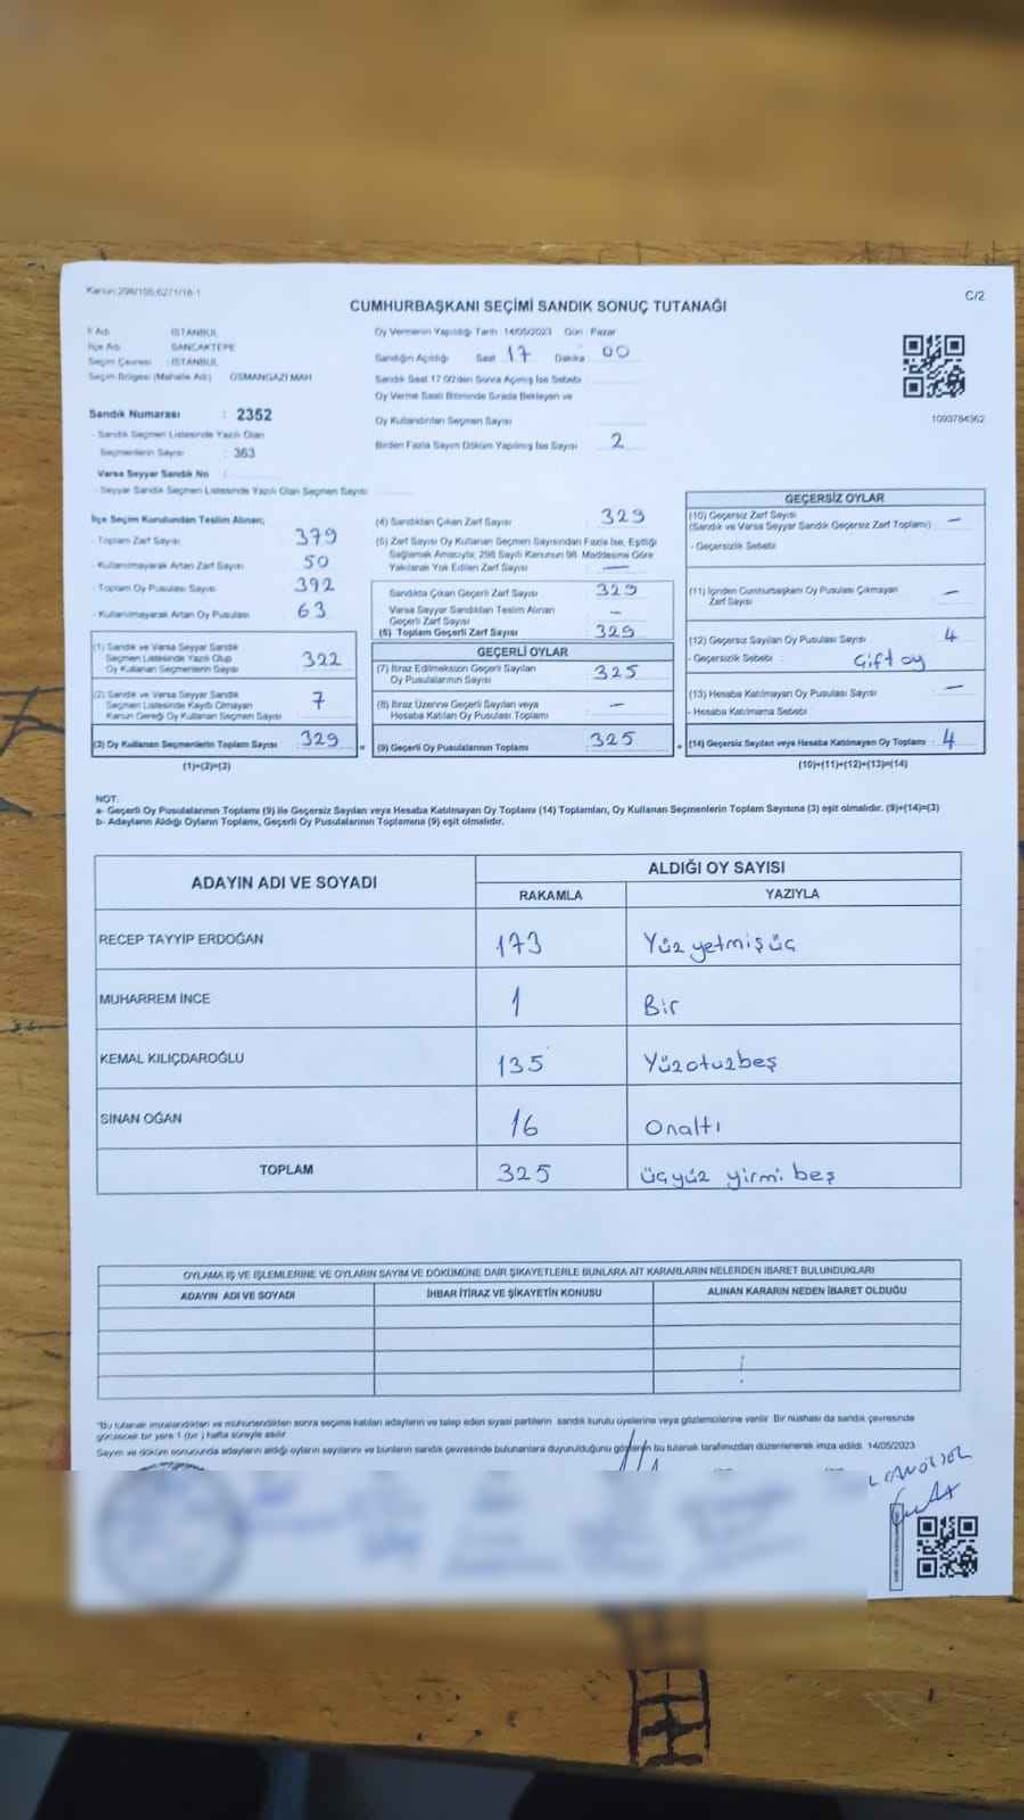 Kanun:298/105;6271/18-1
C/2
CUMHURBAŞKANI SEÇİMİ SANDIK SONUÇ TUTANAĞI
İl Adı : İSTANBUL
İlçe Adı : SANCAKTEPE
Seçim Çevresi : İSTANBUL
Seçim Bölgesi (Mahalle Adı) : OSMANGAZİ MAH
Sandık Numarası : 2352
- Sandık Seçmen Listesinde Yazılı Olan
Seçmenlerin Sayısı : 363
Varsa Seyyar Sandık No :
- Seyyar Sandık Seçmen Listesinde Yazılı Olan Seçmen Sayısı
Oy Vermenin Yapıldığı Tarih : 14/05/2023 Gün : Pazar
Sandığın Açıldığı Saat 17 Dakika 00
Sandık Saat 17:00'den Sonra Açılmış İse Sebebi
Oy Verme Saati Bitiminde Sırada Bekleyen ve
Oy Kullandırılan Seçmen Sayısı
Birden Fazla Sayım Döküm Yapılmış İse Sayısı 2
1093784362
İlçe Seçim Kurulundan Teslim Alınan;
- Toplam Zarf Sayısı 379
- Kullanılmayarak Artan Zarf Sayısı 50
- Toplam Oy Pusulası Sayısı 392
- Kullanılmayarak Artan Oy Pusulası 63
(1) Sandık ve Varsa Seyyar Sandık
Seçmen Listesinde Yazılı Olup
Oy Kullanan Seçmenlerin Sayısı 322
(2) Sandık ve Varsa Seyyar Sandık
Seçmen Listesinde Kayıtlı Olmayan
Kanun Gereği Oy Kullanan Seçmen Sayısı 7
(3) Oy Kullanan Seçmenlerin Toplam Sayısı 329
(1)+(2)=(3)
(4) Sandıktan Çıkan Zarf Sayısı 329
(5) Zarf Sayısı Oy Kullanan Seçmen Sayısından Fazla İse, Eşitliği
Sağlamak Amacıyla, 298 Sayılı Kanunun 98. Maddesine Göre
Yakılarak Yok Edilen Zarf Sayısı —
Sandıkta Çıkan Geçerli Zarf Sayısı 329
Varsa Seyyar Sandıktan Teslim Alınan
Geçerli Zarf Sayısı —
(6) Toplam Geçerli Zarf Sayısı 329
GEÇERLİ OYLAR
(7) İtiraz Edilmeksizin Geçerli Sayılan
Oy Pusulalarının Sayısı 325
(8) İtiraz Üzerine Geçerli Sayılan veya
Hesaba Katılan Oy Pusulası Toplamı —
(9) Geçerli Oy Pusulalarının Toplamı 325
GEÇERSİZ OYLAR
(10) Geçersiz Zarf Sayısı —
(Sandık ve Varsa Seyyar Sandık Geçersiz Zarf Toplamı)
- Geçersizlik Sebebi
(11) İçinden Cumhurbaşkanı Oy Pusulası Çıkmayan
Zarf Sayısı —
(12) Geçersiz Sayılan Oy Pusulası Sayısı 4
- Geçersizlik Sebebi : Çift oy
(13) Hesaba Katılmayan Oy Pusulası Sayısı —
- Hesaba Katılmama Sebebi
(14) Geçersiz Sayılan veya Hesaba Katılmayan Oy Toplamı : 4
(10)+(11)+(12)+(13)=(14)
NOT:
a- Geçerli Oy Pusulalarının Toplamı (9) ile Geçersiz Sayılan veya Hesaba Katılmayan Oy Toplamı (14) Toplamları, Oy Kullanan Seçmenlerin Toplam Sayısına (3) eşit olmalıdır. (9)+(14)=(3)
b- Adayların Aldığı Oyların Toplamı, Geçerli Oy Pusulalarının Toplamına (9) eşit olmalıdır.
ADAYIN ADI VE SOYADI
ALDIĞI OY SAYISI
RAKAMLA YAZIYLA
RECEP TAYYİP ERDOĞAN 173 Yüz yetmişüç
MUHARREM İNCE 1 Bir
KEMAL KILIÇDAROĞLU 135 Yüzotuzbeş
SİNAN OĞAN 16 Onaltı
TOPLAM 325 üçyüz yirmi beş
OYLAMA İŞ VE İŞLEMLERİNE VE OYLARIN SAYIM VE DÖKÜMÜNE DAİR ŞİKAYETLERLE BUNLARA AİT KARARLARIN NELERDEN İBARET BULUNDUKLARI
ADAYIN ADI VE SOYADI İHBAR İTİRAZ VE ŞİKAYETİN KONUSU ALINAN KARARIN NEDEN İBARET OLDUĞU
*Bu tutanak imzalandıktan ve mühürlendikten sonra seçime katılan adayların ve talep eden siyasi partilerin sandık kurulu üyelerine veya gözlemcilerine verilir. Bir nüshası da sandık çevresinde
görülecek bir yere 1 (bir) hafta süreyle asılır.
Sayım ve döküm sonucunda adayların aldığı oyların sayılarını ve bunların sandık çevresinde bulunanlara duyurulduğunu gösteren bu tutanak tarafımızdan düzenlenerek imza edildi. 14/05/2023